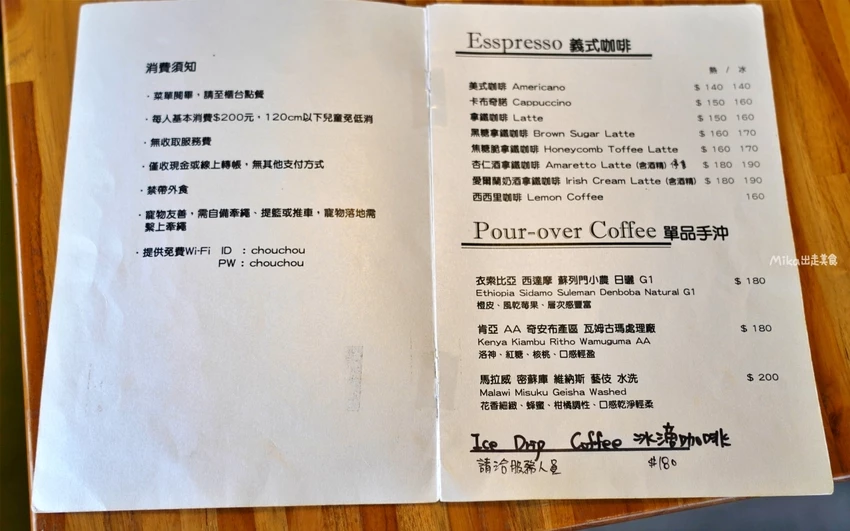 消費須知
· 菜單閱畢，請至櫃台點餐
· 每人基本消費$200元，120cm以下兒童免低消
· 無收取服務費
· 僅收現金或線上轉帳，無其他支付方式
· 禁帶外食
· 寵物友善，需自備牽繩、提籃或推車，寵物落地需
繫上牽繩
· 提供免費Wi-Fi ID : chouchou
PW : chouchou
Esspresso 義式咖啡
熱 / 冰
美式咖啡 Americano $ 140 140
卡布奇諾 Cappuccino $ 150 160
拿鐵咖啡 Latte $ 150 160
黑糖拿鐵咖啡 Brown Sugar Latte $ 160 170
焦糖脆拿鐵咖啡 Honeycomb Toffee Latte $ 160 170
杏仁酒拿鐵咖啡 Amaretto Latte (含酒精) 停售 $ 180 190
愛爾蘭奶酒拿鐵咖啡 Irish Cream Latte (含酒精) $ 180 190
西西里咖啡 Lemon Coffee 160
Pour-over Coffee 單品手沖
衣索比亞 西達摩 蘇列門小農 日曬 G1 $ 180
Ethiopia Sidamo Suleman Denboba Natural G1
橙皮、風乾莓果、層次感豐富
肯亞 AA 奇安布產區 瓦姆古瑪處理廠 $ 180
Kenya Kiambu Ritho Wamuguma AA
洛神、紅糖、核桃、口感輕盈
馬拉威 密蘇庫 維納斯 藝伎 水洗 $ 200
Malawi Misuku Geisha Washed
花香細緻、蜂蜜、柑橘調性、口感乾淨輕柔
Ice Drip Coffee 冰滴咖啡
請洽服務人員 $180
Mika出走美食